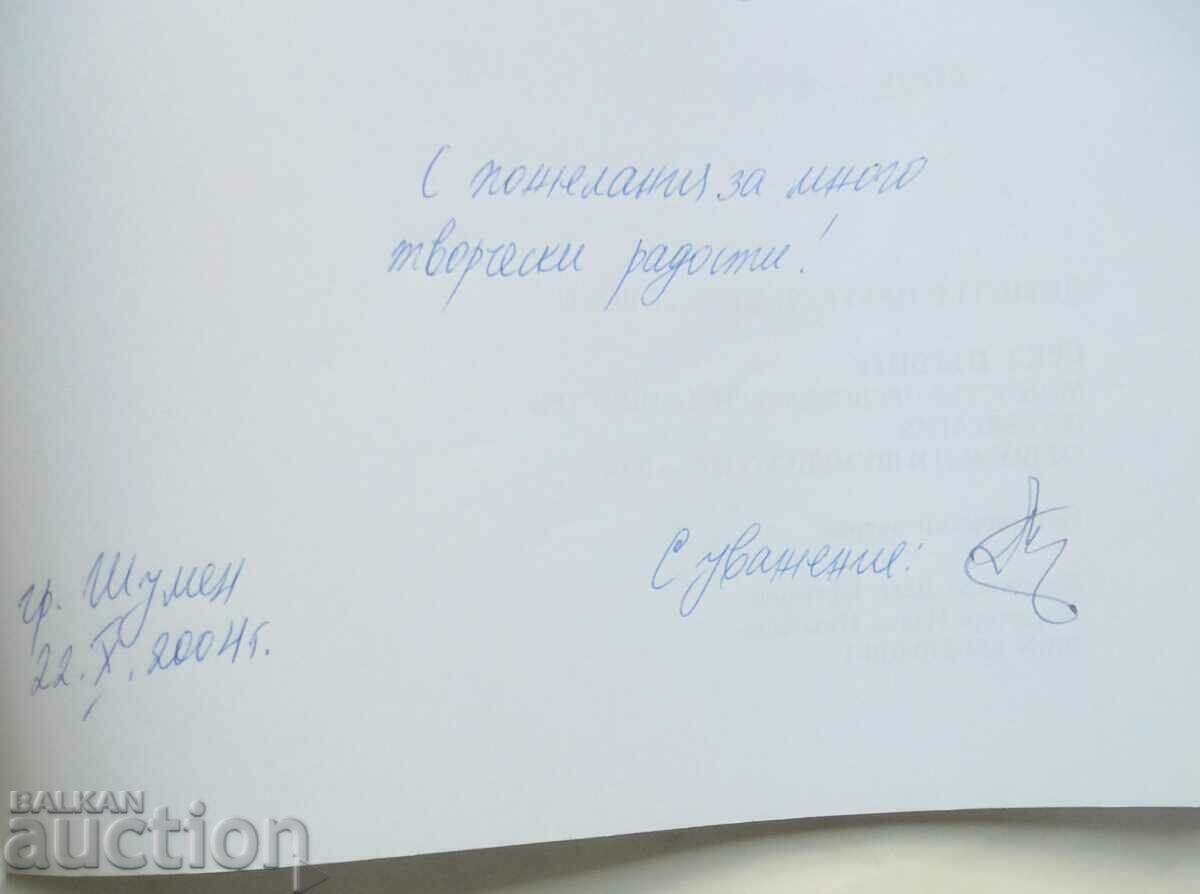 С пожелания за много
творчески радости!
С уважение:
гр. Шумен
22.X.2004г.
BALKAN
auction